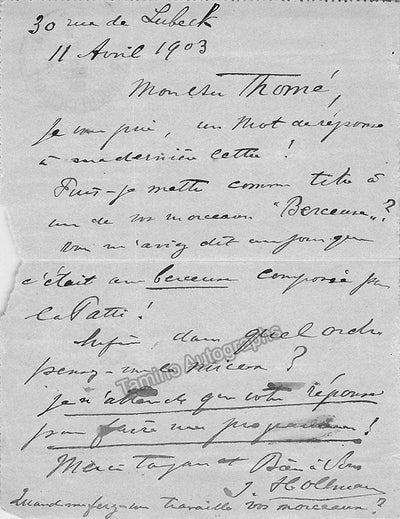 30 rue de Lubeck
11 Avril 1903
Monsieur Thomé,
Je vous prie, un mot de réponse
à ma dernière lettre !
Puis-je mettre comme titre à
un de vos morceaux "Berceuse" ?
vous m'aviez dit un jour que
c'était une berceuse composée par
la Patti !
Enfin, dans quel ordre
pensez-vous
je n'attends que votre réponse
pour faire mes programmes !
Merci Bien à Vous
J. Hollman
Quand travailler vos morceaux ?
Tamino Autographs